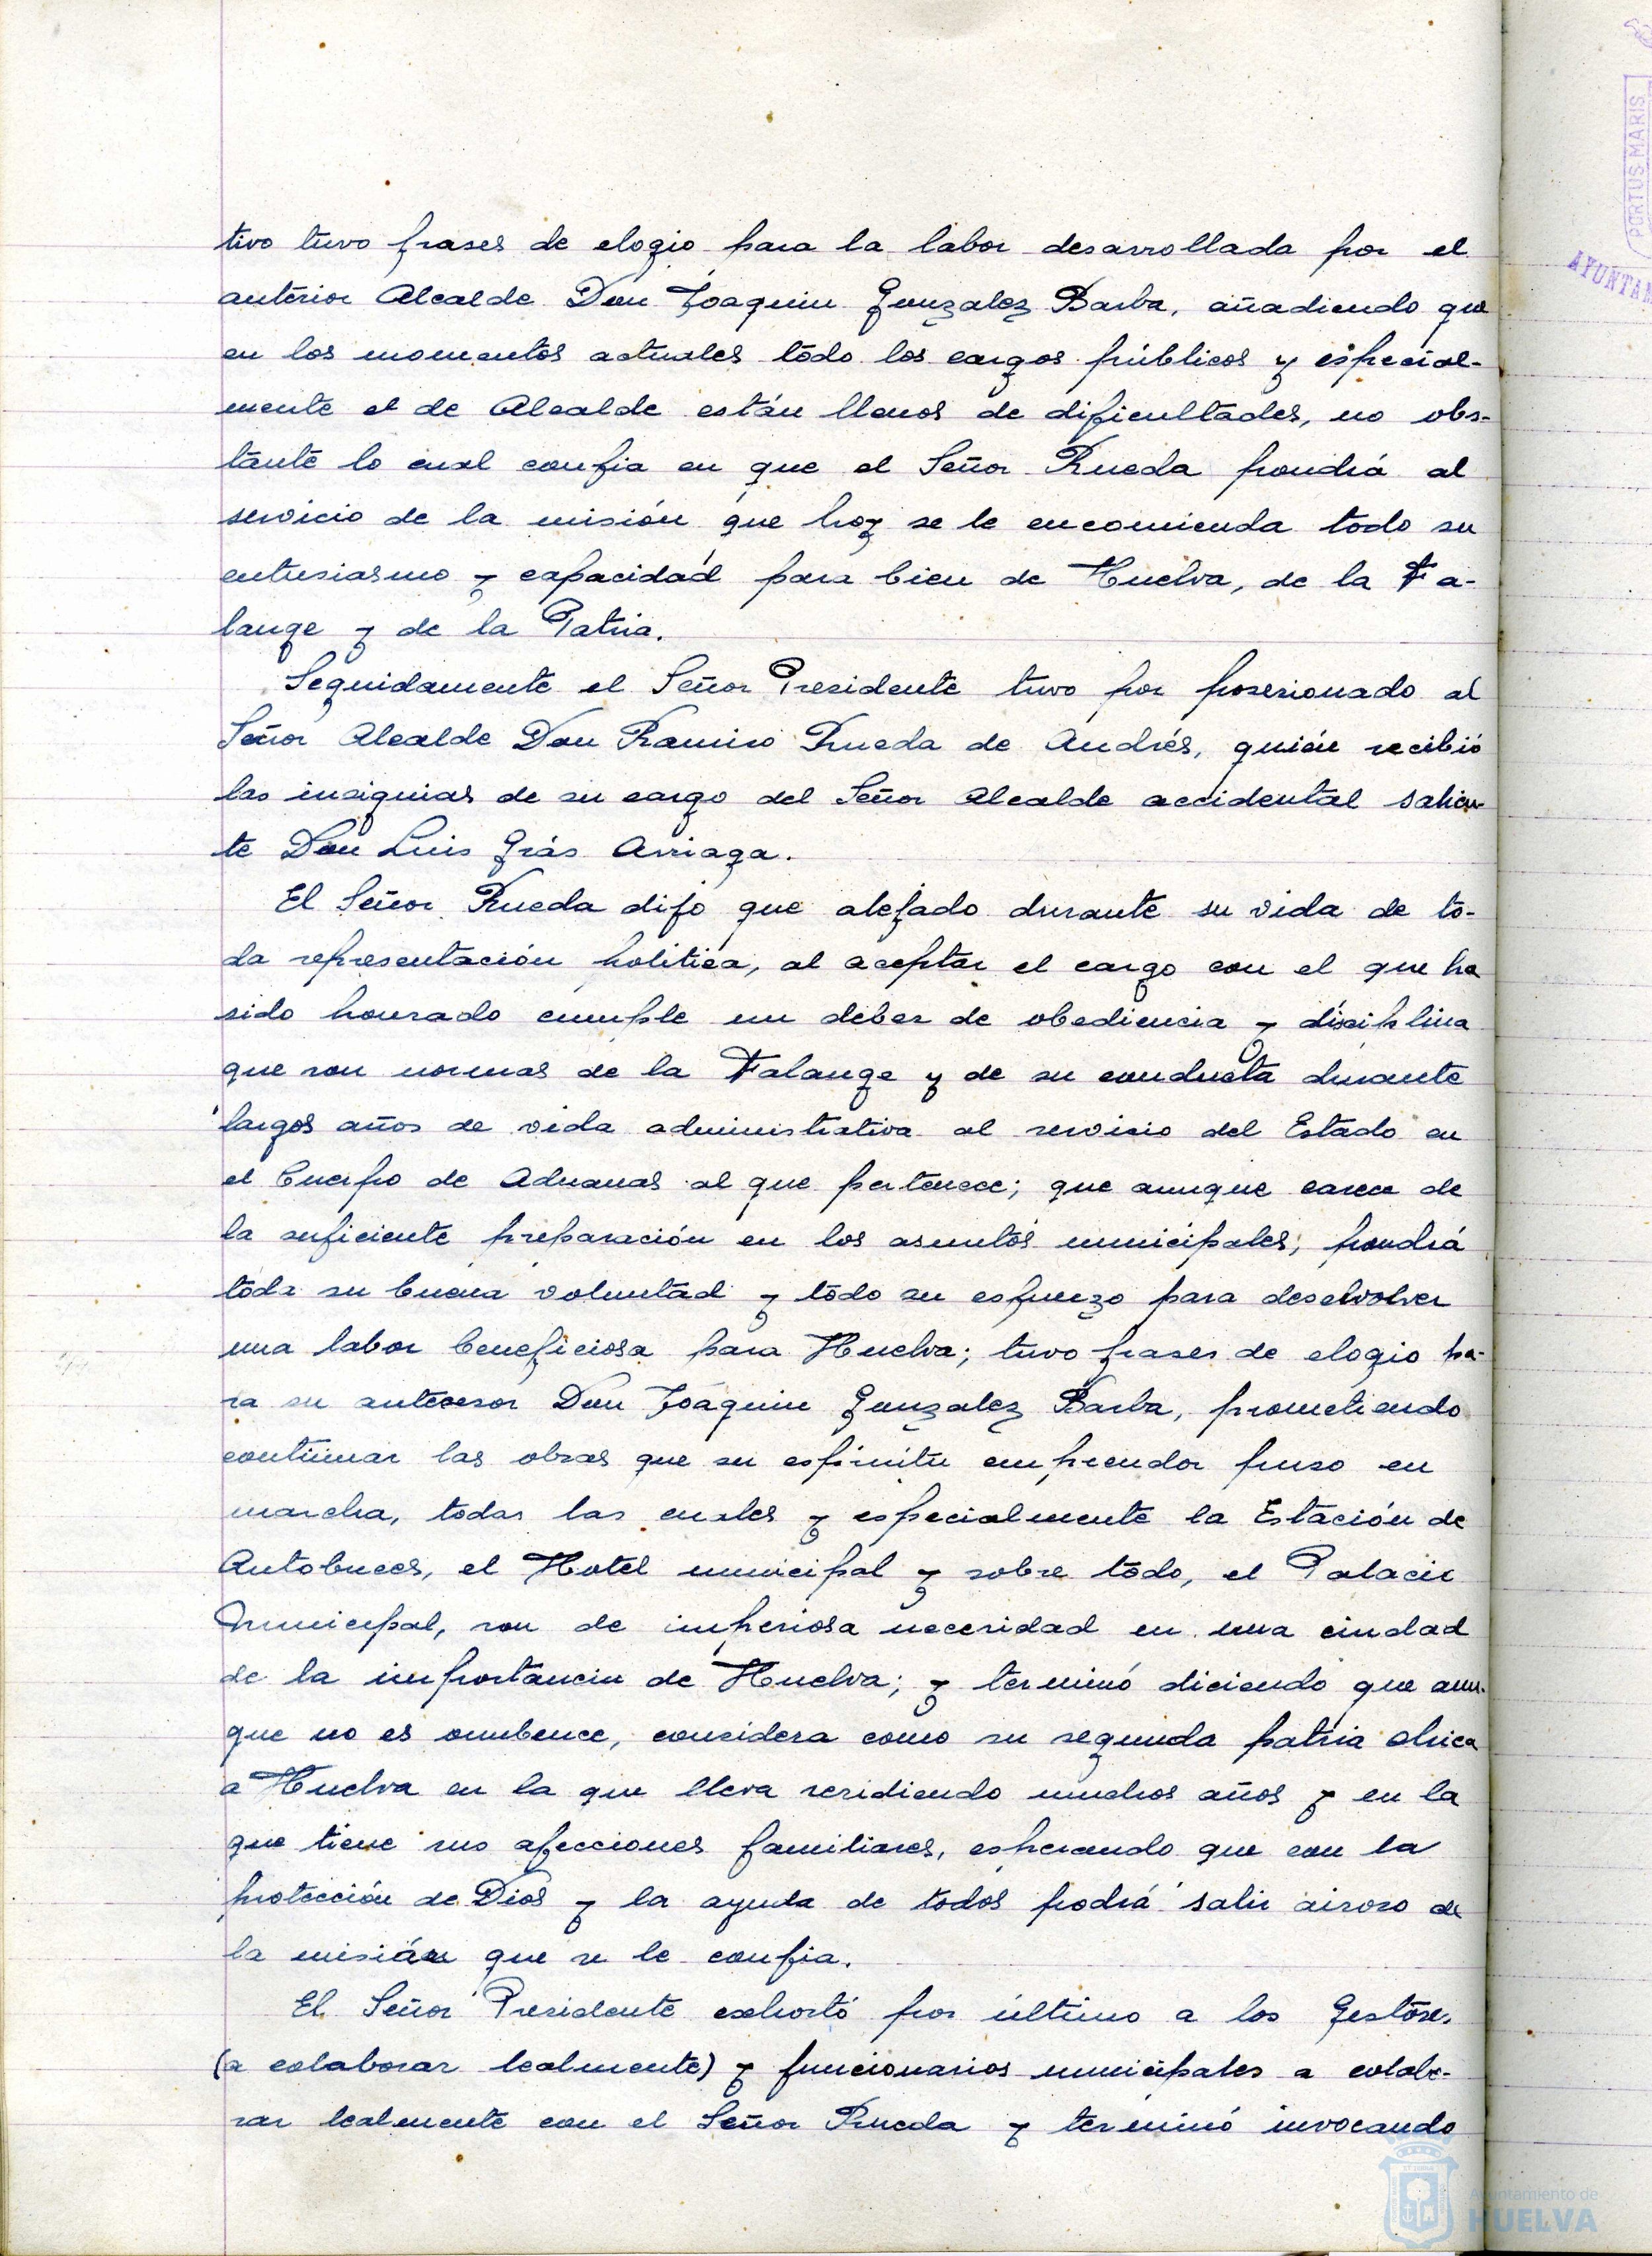 tivo tuvo frases de elogio para la labor desarrollada por el
anterior Alcalde Don Joaquin Gonzalez Barba, añadiendo que
en los momentos actuales todo los cargos públicos y especial-
mente el de Alcalde están llenos de dificultades, no obs-
tante lo cual confia en que el Señor Rueda pondrá al
servicio de la misión que hoy se le encomienda todo su
entusiasmo y capacidad para bien de Huelva, de la Fa-
lange y de la Patria.
Seguidamente el Señor Presidente tuvo por posesionado al
Señor Alcalde Don Ramiro Rueda de Andrés, quién recibió
las insignias de su cargo del Señor Alcalde accidental salien-
te Don Luis Grás Arriaga.
El Señor Rueda dijo que alejado durante su vida de to-
da representación politica, al aceptar el cargo con el que ha
sido honrado cumple un deber de obediencia y disciplina
que son normas de la Falange y de su conducta durante
largos años de vida administrativa al servicio del Estado en
el Cuerpo de Aduanas al que pertenece; que aunque carece de
la suficiente preparación en los asuntos municipales, pondrá
toda su buena voluntad y todo su esfuerzo para deselvolver
una labor beneficiosa para Huelva; tuvo frases de elogio pa-
ra su antecesor Don Joaquin Gonzalez Barba, prometiendo
continuar las obras que su espiritu emprendor puso en
marcha, todas las cuales y especialmente la Estación de
Autobuces, el Hotel municipal y sobre todo, el Palacio
Municipal, son de imperiosa necesidad en una ciudad
de la importancia de Huelva; y terminó diciendo que aun-
que no es onubence, considera como su segunda patria chica
a Huelva en la que lleva residiendo muchos años y en la
que tiene sus afecciones familiares, esperando que con la
protección de Dios y la ayuda de todos podrá salir airoso de
la misión que se le confia.
El Señor Presidente exhortó por último a los Gestores
(a colaborar lealmente) y funcionarios municipales a colabo-
rar lealmente con el Señor Rueda y terminó invocando
PORTUS MARIS
AYUNTAM
Ayuntamiento de
HUELVA